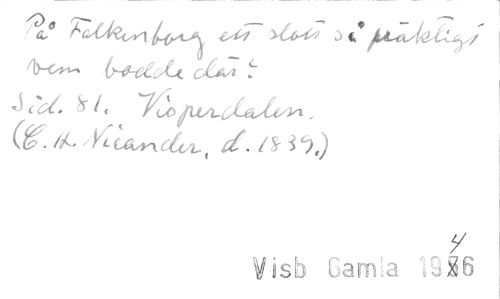 På Falkenborg ett slott så präktigt
vem bodde där?
Sid. 81. Visperdalen.
(C. H. Nicander, d. 1839.)
4
Visb Gamla 1986